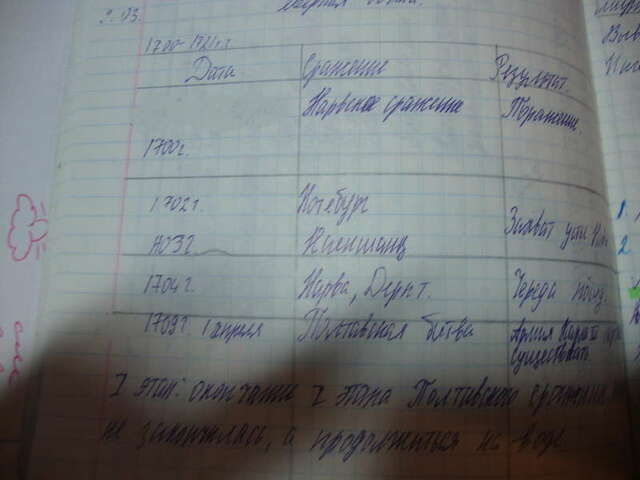 9.03.
1700-1721гг
Дата Сражение Результат.
Нарвское сражение Поражение.
1700г.
1702г. Нотебург
Захват устья
1703г. Ниеншанц
1704г. Нарва, Дерпт. Череда побед.
1709г. 1 апреля Полтавская битва Армия Карла
существовать
I этап: окончание I этапа Полтавского сражения
не закончилась, а продолжиться на воде